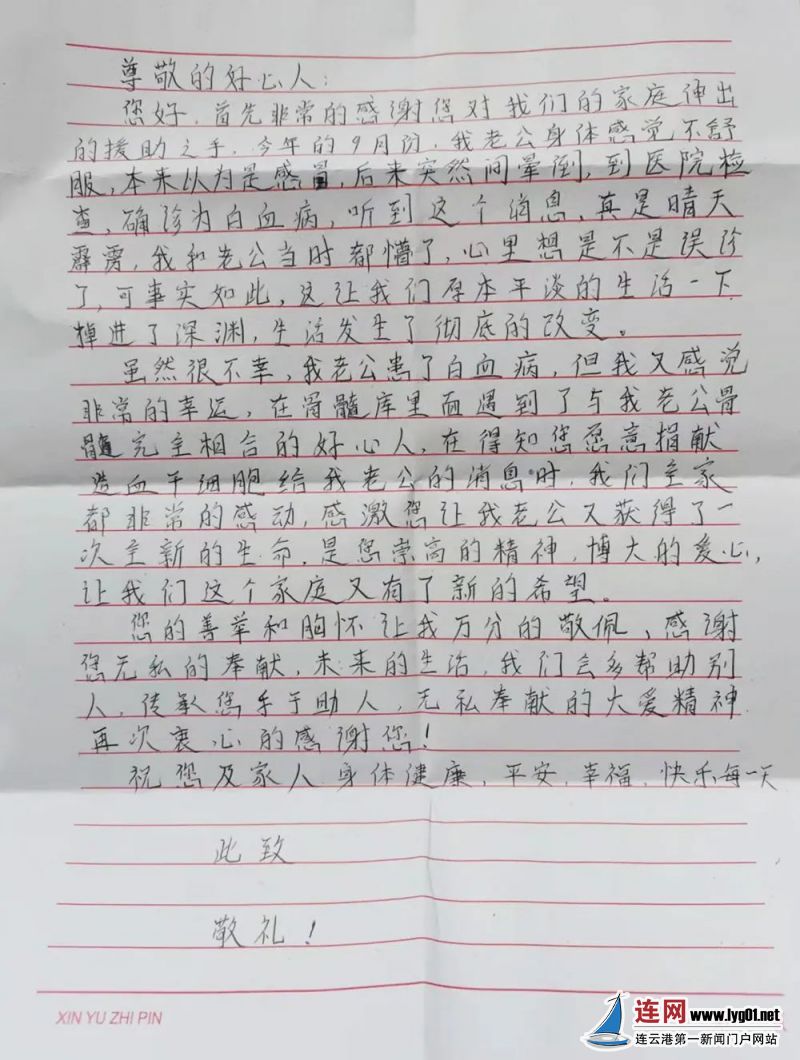 尊敬的好心人：
您好，首先非常的感谢您对我们的家庭伸出
的援助之手，今年的9月份，我老公身体感觉不舒
服，本来以为是感冒，后来突然间晕倒，到医院检
查，确诊为白血病，听到这个消息，真是晴天
霹雳，我和老公当时都懵了，心里想是不是误诊
了，可事实如此，这让我们原本平淡的生活一下
掉进了深渊，生活发生了彻底的改变。
虽然很不幸，我老公患了白血病，但我又感觉
非常的幸运，在骨髓库里面遇到了与我老公骨
髓完全相合的好心人，在得知您愿意捐献
造血干细胞给我老公的消息时，我们全家
都非常的感动，感激您让我老公又获得了一
次全新的生命，是您崇高的精神，博大的爱心，
让我们这个家庭又有了新的希望。
您的善举和胸怀让我万分的敬佩，感谢
您无私的奉献，未来的生活，我们会多帮助别
人，传承您乐于助人，无私奉献的大爱精神
再次衷心的感谢您！
祝您及家人身体健康，平安，幸福，快乐每一天
此致
敬礼！
XIN YU ZHI PIN
连网 www.lyg01.net
连云港第一新闻门户网站